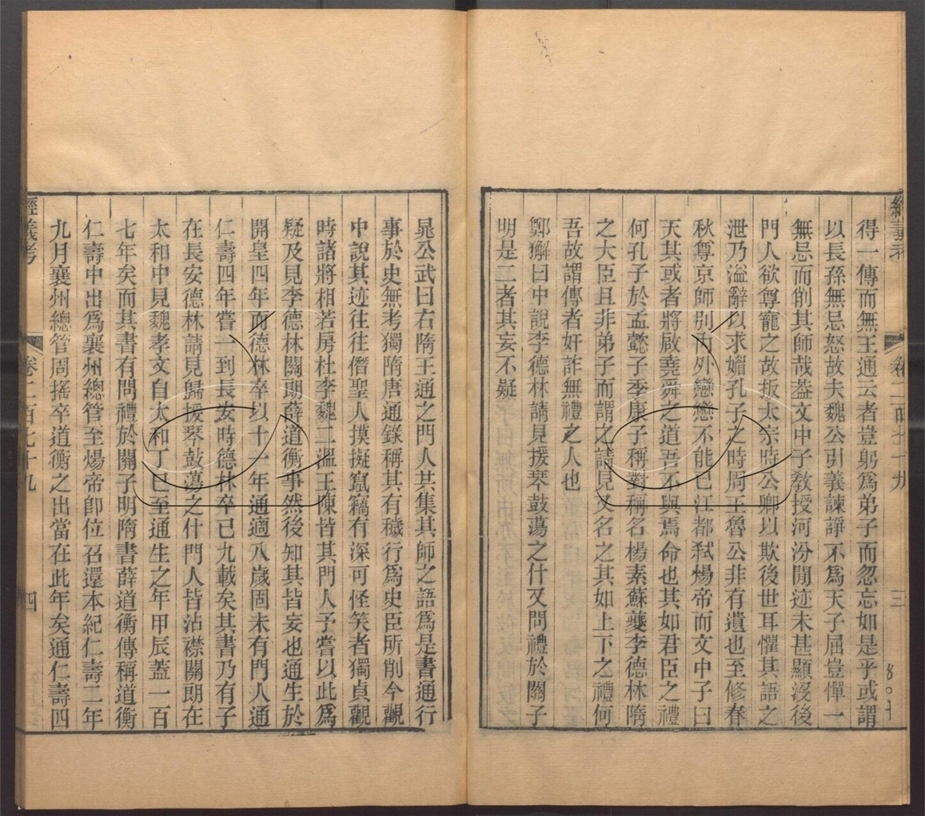 得一傳而無王通云者豈躬爲弟子而忽忘如是乎或謂
以長孫無忌怒故夫魏公引義諫諍不爲天子屈豈憚一
無忌而削其師哉葢文中子敎授河汾閒迹未甚顯沒後
門人欲尊寵之故扳太宗時公卿以欺後世耳懼其語之
泄乃溢辭以求媚孔子之時周王魯公非有遺也至修春
秋尊京師別內外戀戀不能已江都弑煬帝而文中子曰
天其或者將啟堯舜之道吾不與焉命也其如君臣之禮
何孔子於孟懿子季康子稱對稱名楊素蘇夔李德林隋
之大臣且非弟子而謂之請見又名之其如上下之禮何
吾故謂傳者奸詐無禮之人也
鄭獬曰中說李德林請見援琴鼓蕩之什又問禮於關子
明是二者其妄不疑
經義考
卷二百七十九
三
晁公武曰右隋王通之門人其集其師之語爲是書通行
事於史無考獨隋唐通錄稱其有穢行爲史臣所削今觀
中說其迹往往僭聖人摸擬竄竊有深可怪笑者獨貞觀
時諸將相若房杜李魏二溫王陳皆其門人予嘗以此爲
疑及見李德林關朗薛道衡事然後知其皆妄也通生於
開皇四年而德林卒以十一年通適八歲固未有門人通
仁壽四年嘗一到長安時德林卒已九載矣其書乃有子
在長安德林請見歸援琴鼓蕩之什門人皆沾襟關朗在
太和中見魏孝文自太和丁巳至通生之年甲辰蓋一百
七年矣而其書有問禮於關子明隋書薛道衡傳稱道衡
仁壽中出爲襄州總管至煬帝卽位召還本紀仁壽二年
九月襄州總管周搖卒道衡之出當在此年矣通仁壽四
經義考
卷二百七十九
四